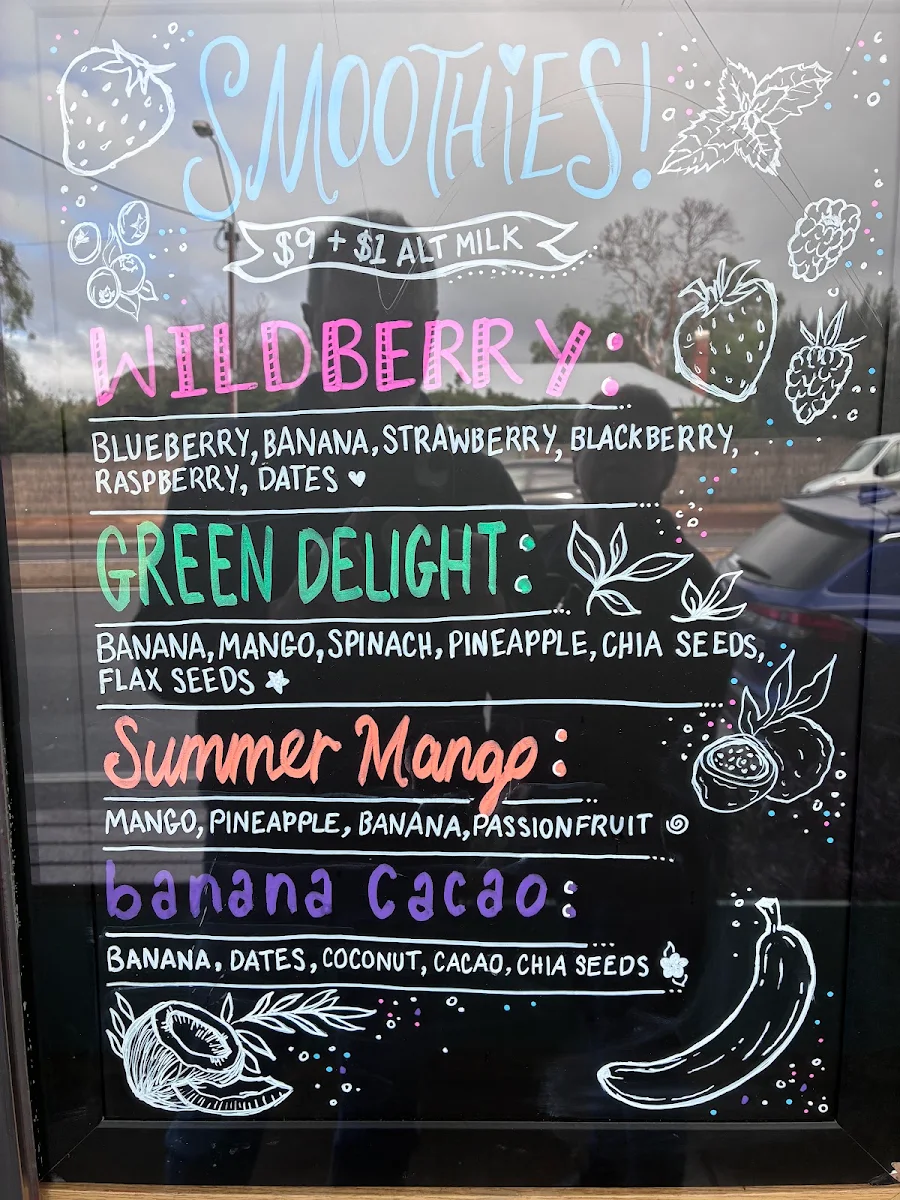 SMOOTHiES!
$9 + $1 ALT MILK
WILDBERRY:
BLUEBERRY, BANANA, STRAWBERRY, BLACKBERRY,
RASPBERRY, DATES ♥
GREEN DELIGHT:
BANANA, MANGO, SPINACH, PINEAPPLE, CHIA SEEDS,
FLAX SEEDS
Summer Mango:
MANGO, PINEAPPLE, BANANA, PASSIONFRUIT
banana Cacao:
BANANA, DATES, COCONUT, CACAO, CHIA SEEDS